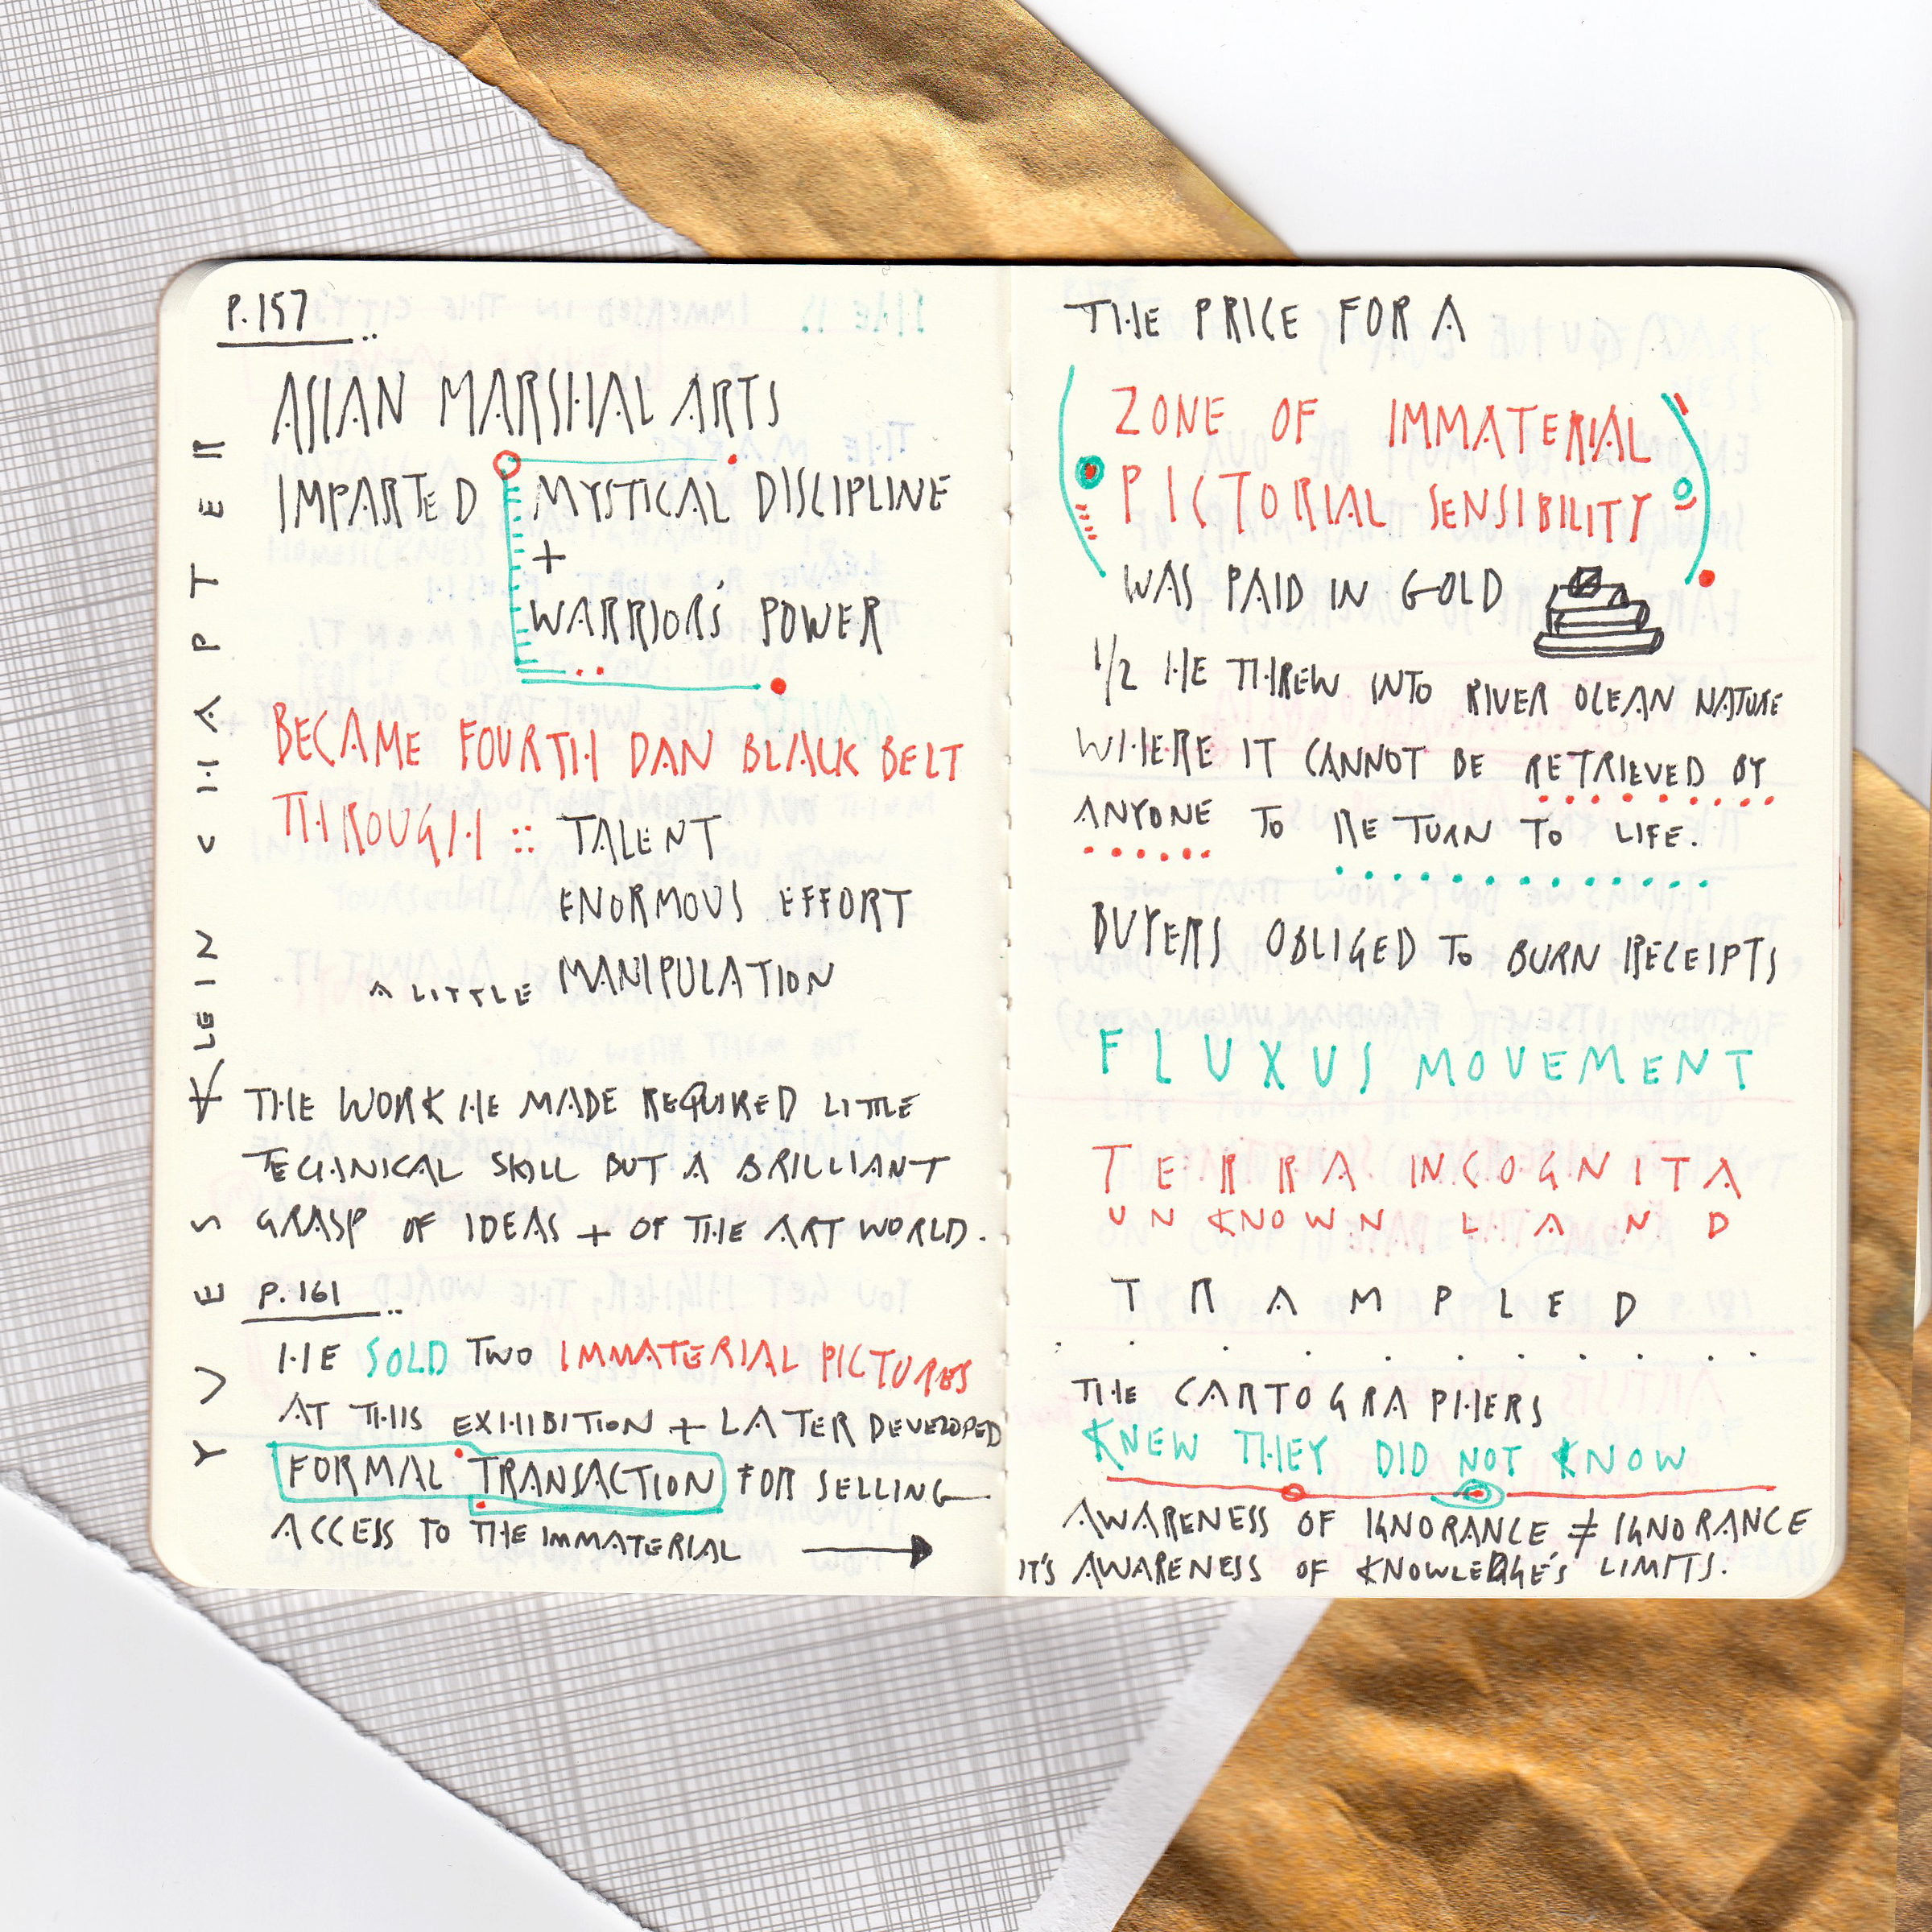 P.157
YVES KLEIN CHAPTER
ASIAN MARSHAL ARTS
IMPARTED MYSTICAL DISCIPLINE
+
WARRIOR'S POWER
BECAME FOURTH DAN BLACK BELT
THROUGH :: TALENT
ENORMOUS EFFORT
A LITTLE MANIPULATION
THE WORK HE MADE REQUIRED LITTLE
TECHNICAL SKILL BUT A BRILLIANT
GRASP OF IDEAS + OF THE ART WORLD.
P.161
HE SOLD TWO IMMATERIAL PICTURES
AT THIS EXHIBITION + LATER DEVELOPED
FORMAL TRANSACTION FOR SELLING
ACCESS TO THE IMMATERIAL →
THE PRICE FOR A
ZONE OF IMMATERIAL
PICTORIAL SENSIBILITY
WAS PAID IN GOLD
1/2 HE THREW INTO RIVER OCEAN NATURE
WHERE IT CANNOT BE RETRIEVED BY
ANYONE TO RETURN TO LIFE.
BUYERS OBLIGED TO BURN RECEIPTS
FLUXUS MOVEMENT
TERRA INCOGNITA
UNKNOWN LAND
TRAMPLED
THE CARTOGRAPHERS
KNEW THEY DID NOT KNOW
AWARENESS OF IGNORANCE ≠ IGNORANCE
IT'S AWARENESS OF KNOWLEDGE'S LIMITS.